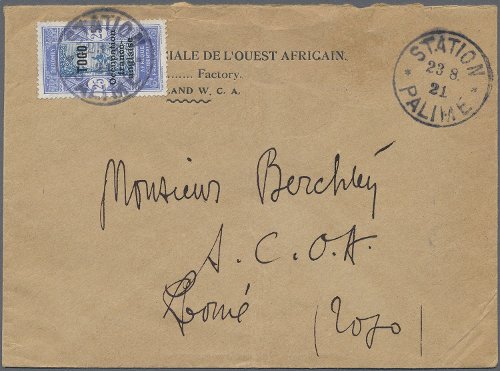 TOGO
Occupation
franco-
anglaise
25
STATION
PALIME
CIALE DE L'OUEST AFRICAIN.
......... Factory.
AND W. C. A.
STATION
23 8
21
PALIME
Monsieur
A. C. O. A.
Lomé (Togo)